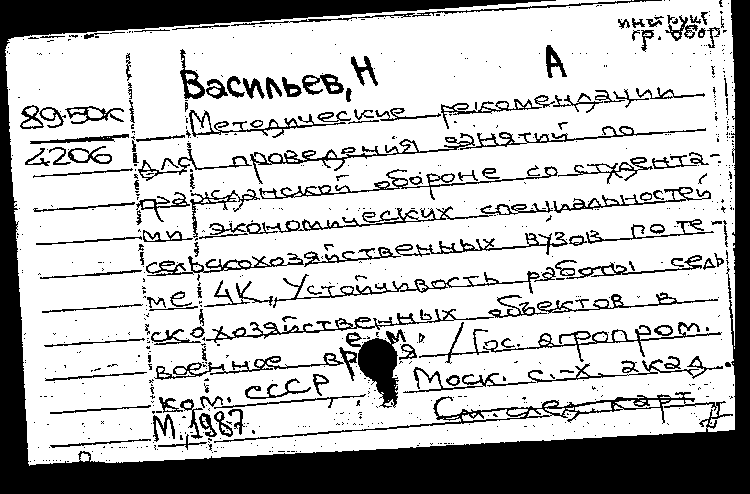 инструкт
гр. обор.
Васильев, Н А
89-50к
4206
Методические рекомендации
для проведения занятий по
гражданской обороне со студента-
ми экономических специальностей
сельскохозяйственных вузов по те-
ме 4К „Устойчивость работы сель
скохозяйственных объектов в
военное время" / Гос. агропром.
ком. СССР, Моск. с.-х. акад.
М., 1987.
См. след. карт